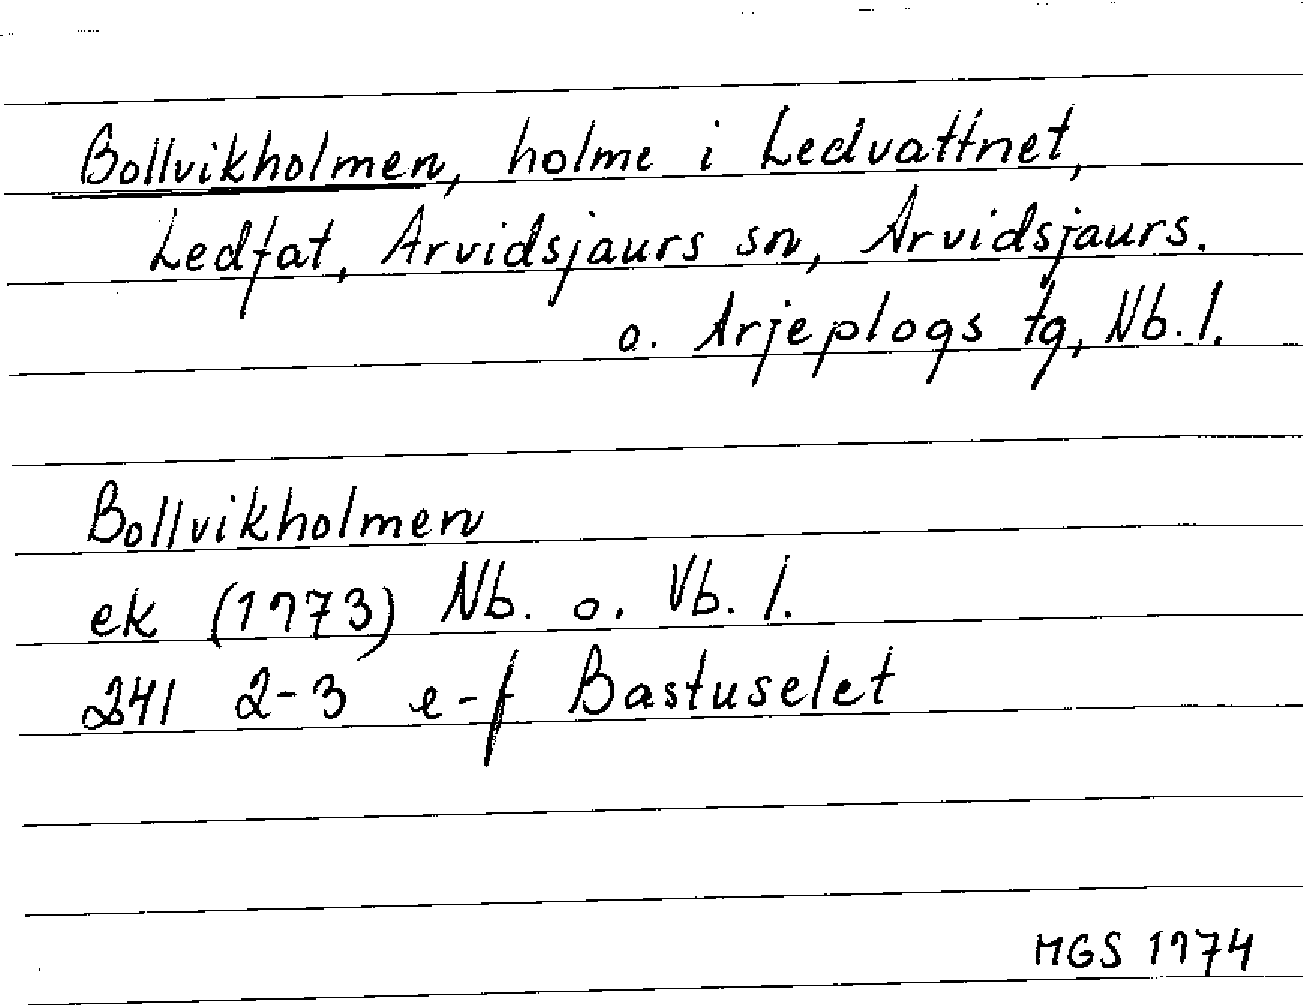 Bollvikholmen, holme i Ledvattnet,
Ledfat, Arvidsjaurs sn, Arvidsjaurs.
o. Arjeplogs tg, Nb. l.
Bollvikholmen
ek (1973) Nb. o. Vb. l.
241 2-3 e-f Bastuselet
MGS 1974